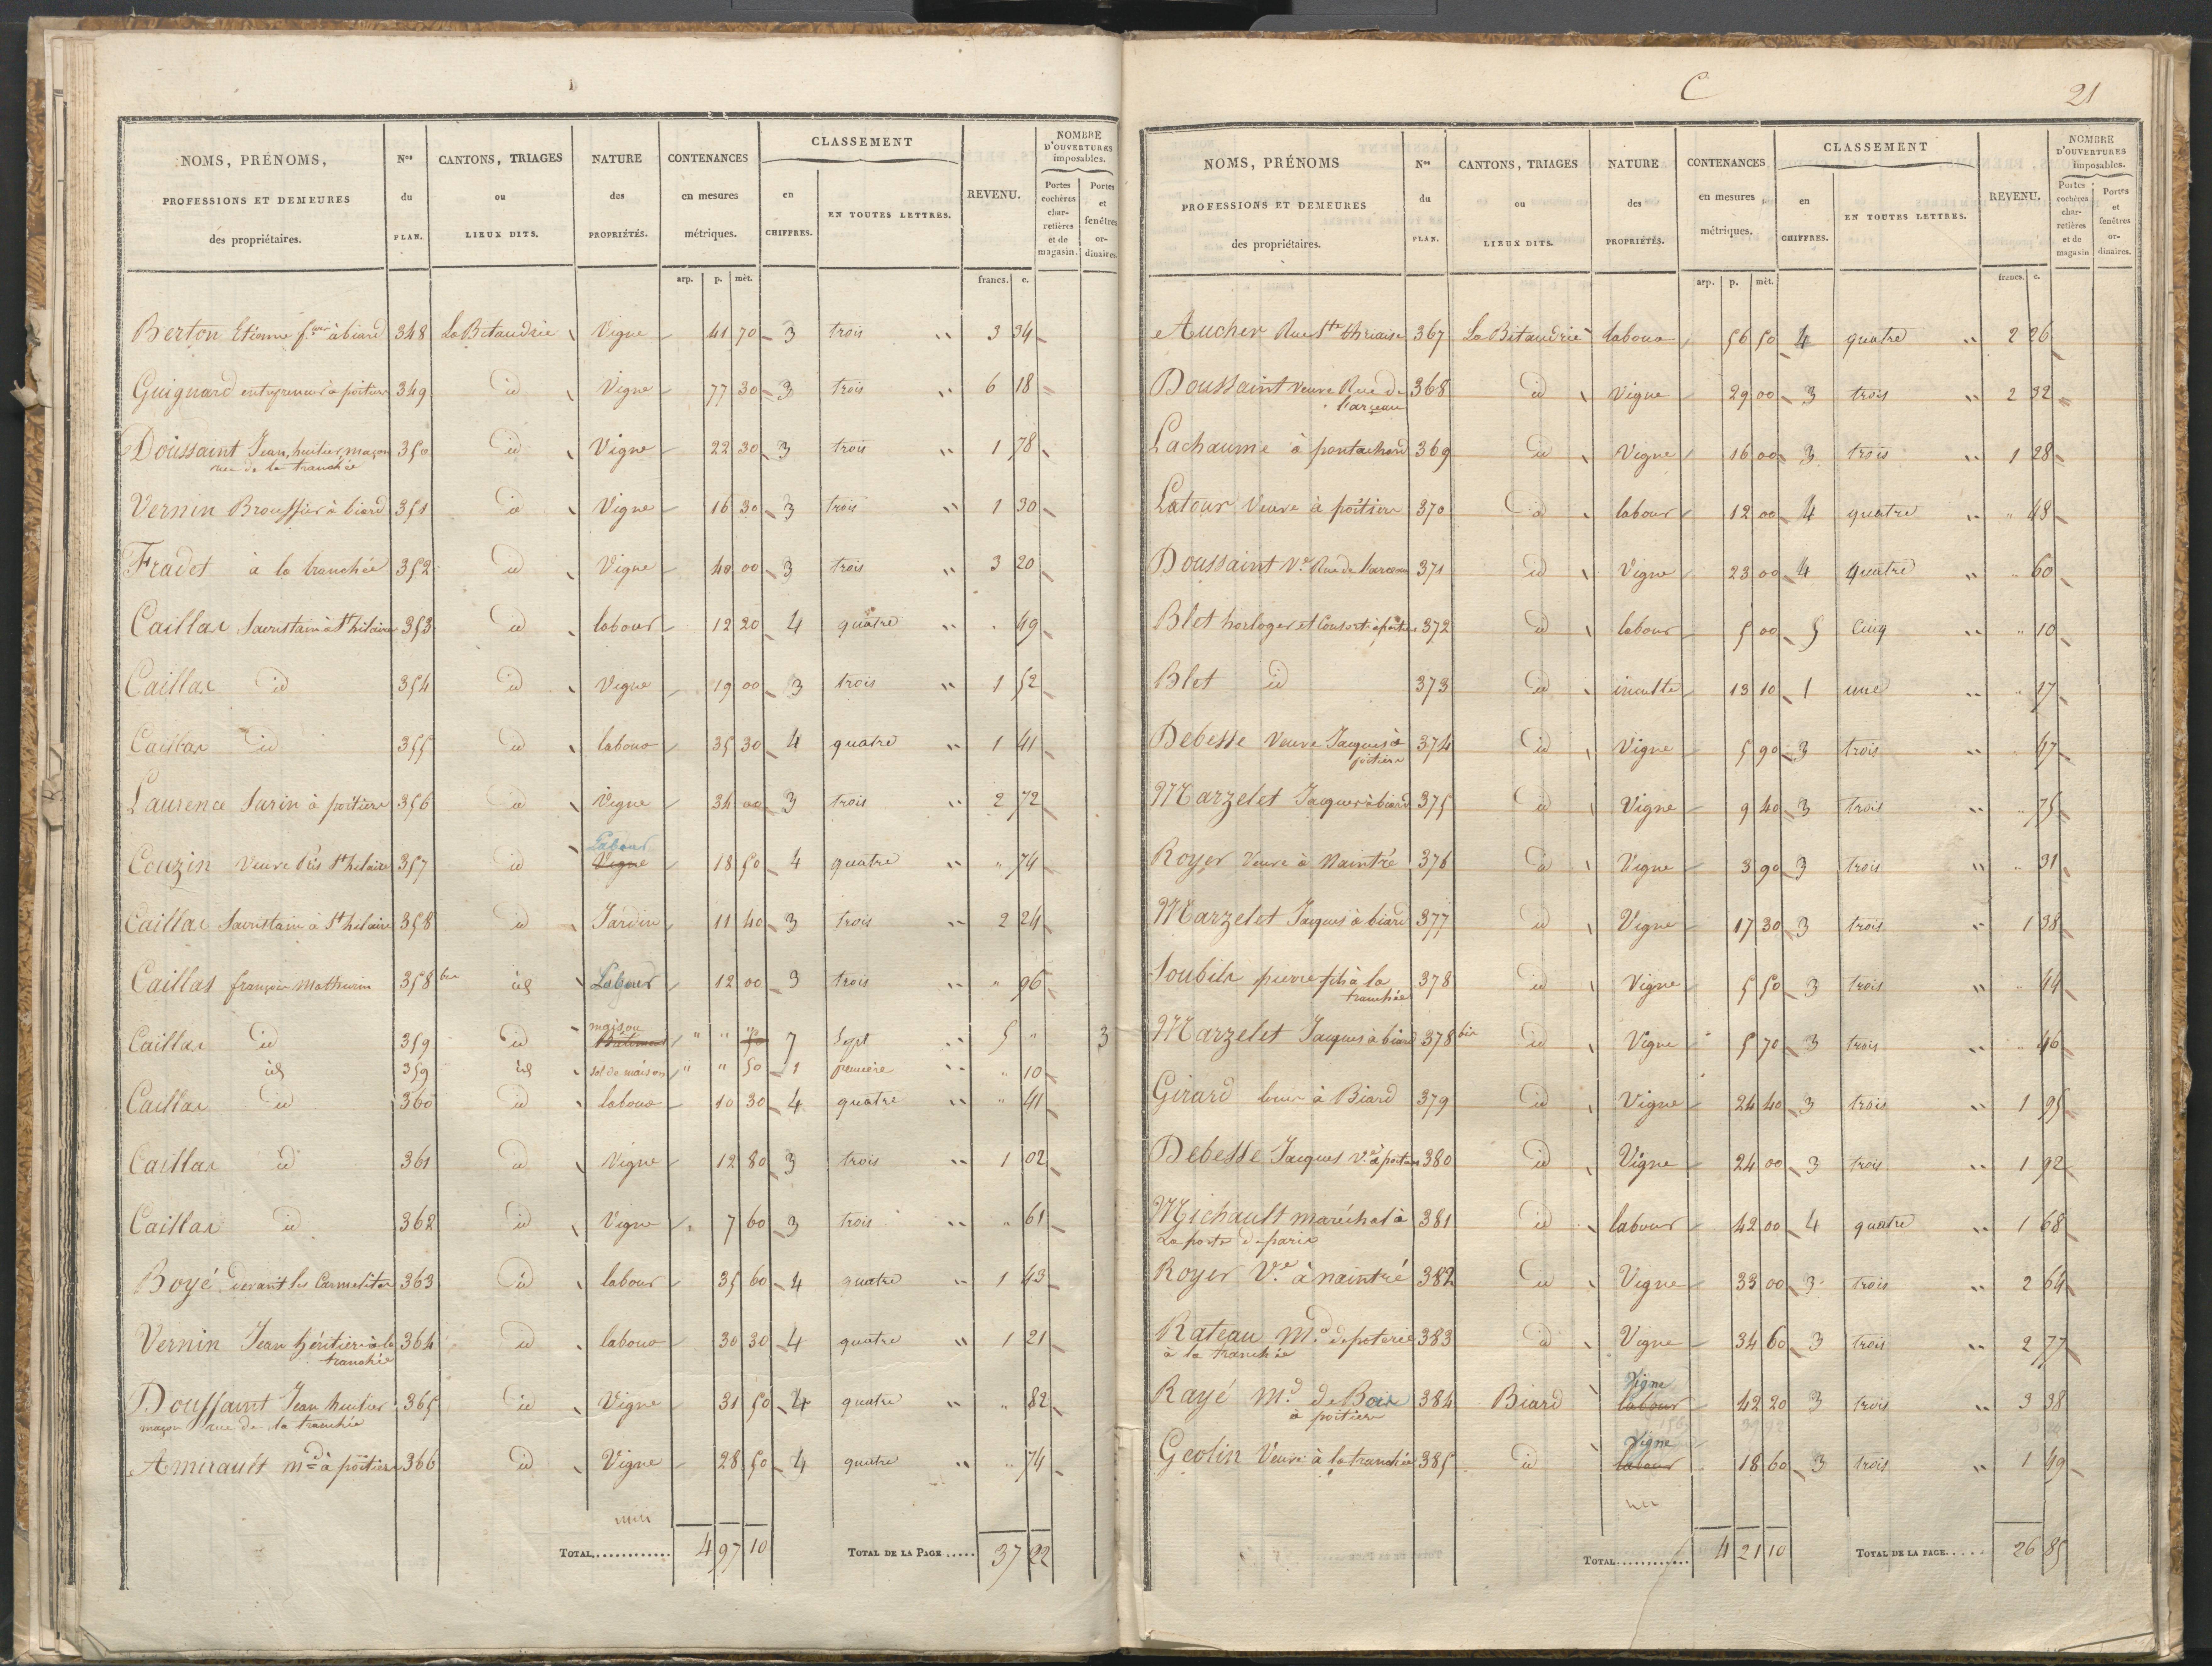 NOMS, PRÉNOMS, PROFESSIONS ET DEMEURES des propriétaires. Nos du PLAN. CANTONS, TRIAGES ou LIEUX DITS. NATURE des PROPRIÉTÉS. CONTENANCES en mesures métriques. CLASSEMENT en CHIFFRES. EN TOUTES LETTRES. REVENU. NOMBRE D'OUVERTURES imposables. Portes cochères charretières et de magasin. Portes et fenêtres ordinaires.
arp. p. mèt. francs. c.
Berton Etienne à biard 348 La Bitaudrie Vigne 41 70 3 trois " 3 34
Guignard entrepreneur à poitiers 349 id Vigne 77 30 3 trois " 6 18
Doussaint Jean, huilier, maçon 350 id Vigne 22 30 3 trois " 1 78
rue de la tranchée
Vernin Broussier à biard 351 id Vigne 16 30 3 trois " 1 30
Fradet à la tranchée 352 id Vigne 40 00 3 trois " 3 20
Caillas Sacristain à St hilaire 353 id labour 12 20 4 quatre " " 49
Caillas id 354 id Vigne 19 00 3 trois " 1 52
Caillas id 355 id labour 35 30 4 quatre " 1 41
Laurence Surin à poitiers 356 id Vigne 34 00 3 trois " 2 72
Labour
Couzin Veuve Près St hilaire 357 id Vigne 18 50 4 quatre " " 74
Caillas Sacristain à St hilaire 358 id Jardin 11 40 3 trois " 2 24
Caillas françois Mathurin 358 bis id Labour 12 00 3 trois " " 96
maison
Caillas id 359 id Bâtiment " " 50 7 Sept " 5 " 3
id 359 id sol de maison " " 50 1 première " " 10
Caillas id 360 id labour 10 30 4 quatre " " 41
Caillas id 361 id Vigne 12 80 3 trois " 1 02
Caillas id 362 id Vigne 7 60 3 trois " " 61
Boyé devant les Carmelites 363 id labour 35 60 4 quatre " 1 43
Vernin Jean héritier à la 364 id labour 30 30 4 quatre " 1 21
tranchée
Doussaint Jean huilier 365 id Vigne 31 50 4 quatre " " 82
maçon rue de la tranchée
Amirault md à poitiers 366 id Vigne 28 50 4 quatre " " 74
TOTAL............ 4 97 10 TOTAL DE LA PAGE ..... 37 22
C
21
NOMS, PRÉNOMS PROFESSIONS ET DEMEURES des propriétaires. Nos du PLAN. CANTONS, TRIAGES ou LIEUX DITS. NATURE des PROPRIÉTÉS. CONTENANCES en mesures métriques. CLASSEMENT en CHIFFRES. EN TOUTES LETTRES. REVENU. NOMBRE D'OUVERTURES imposables. Portes cochères charretières et de magasin Portes et fenêtres ordinaires.
arp. p. mèt. francs. c.
Aucher Rue Ste 367 La Bitaudrie labour 56 50 4 quatre " 2 26
Doussaint veuve Rue de 368 id Vigne 29 00 3 trois " 2 32
Lachaume à pontachard 369 id Vigne 16 00 3 trois " 1 28
Latour Veuve à poitiers 370 id labour 12 00 4 quatre " " 48
Doussaint Ve Rue de 371 id Vigne 23 00 4 quatre " " 60
Blet horloger et Consort à poitiers 372 id labour 5 00 5 Cinq " " 10
Blet id 373 id inculte 13 10 1 une " " 17
Debesse Veuve Jacques à 374 id Vigne 5 90 3 trois " " 47
poitiers
Marzelet Jacques à biard 375 id Vigne 9 40 3 trois " " 75
Royer Veuve à Naintré 376 id Vigne 3 90 3 trois " " 31
Marzelet Jacques à biard 377 id Vigne 17 30 3 trois " 1 38
Soubils pierre fils à la 378 id Vigne 5 50 3 trois " " 44
tranchée
Marzelet Jacques à biard 378 bis id Vigne 5 70 3 trois " " 46
Girard louis à Biard 379 id Vigne 24 40 3 trois " 1 95
Debesse Jacques Ve à poitiers 380 id Vigne 24 00 3 trois " 1 92
Michault maréchal à 381 id labour 42 00 4 quatre " 1 68
La porte de paris
Royer Ve à naintré 382 id Vigne 33 00 3 trois " 2 64
Rateau Md de poterie 383 id Vigne 34 60 3 trois " 2 77
à la tranchée
Vigne
Rayé Md de Bois 384 Biard labour 42 20 3 trois " 3 38
à poitiers
Vigne
Geolin Veuve à la tranchée 385 id labour 18 60 3 trois " 1 49
TOTAL............ 4 21 10 TOTAL DE LA PAGE..... 26 85